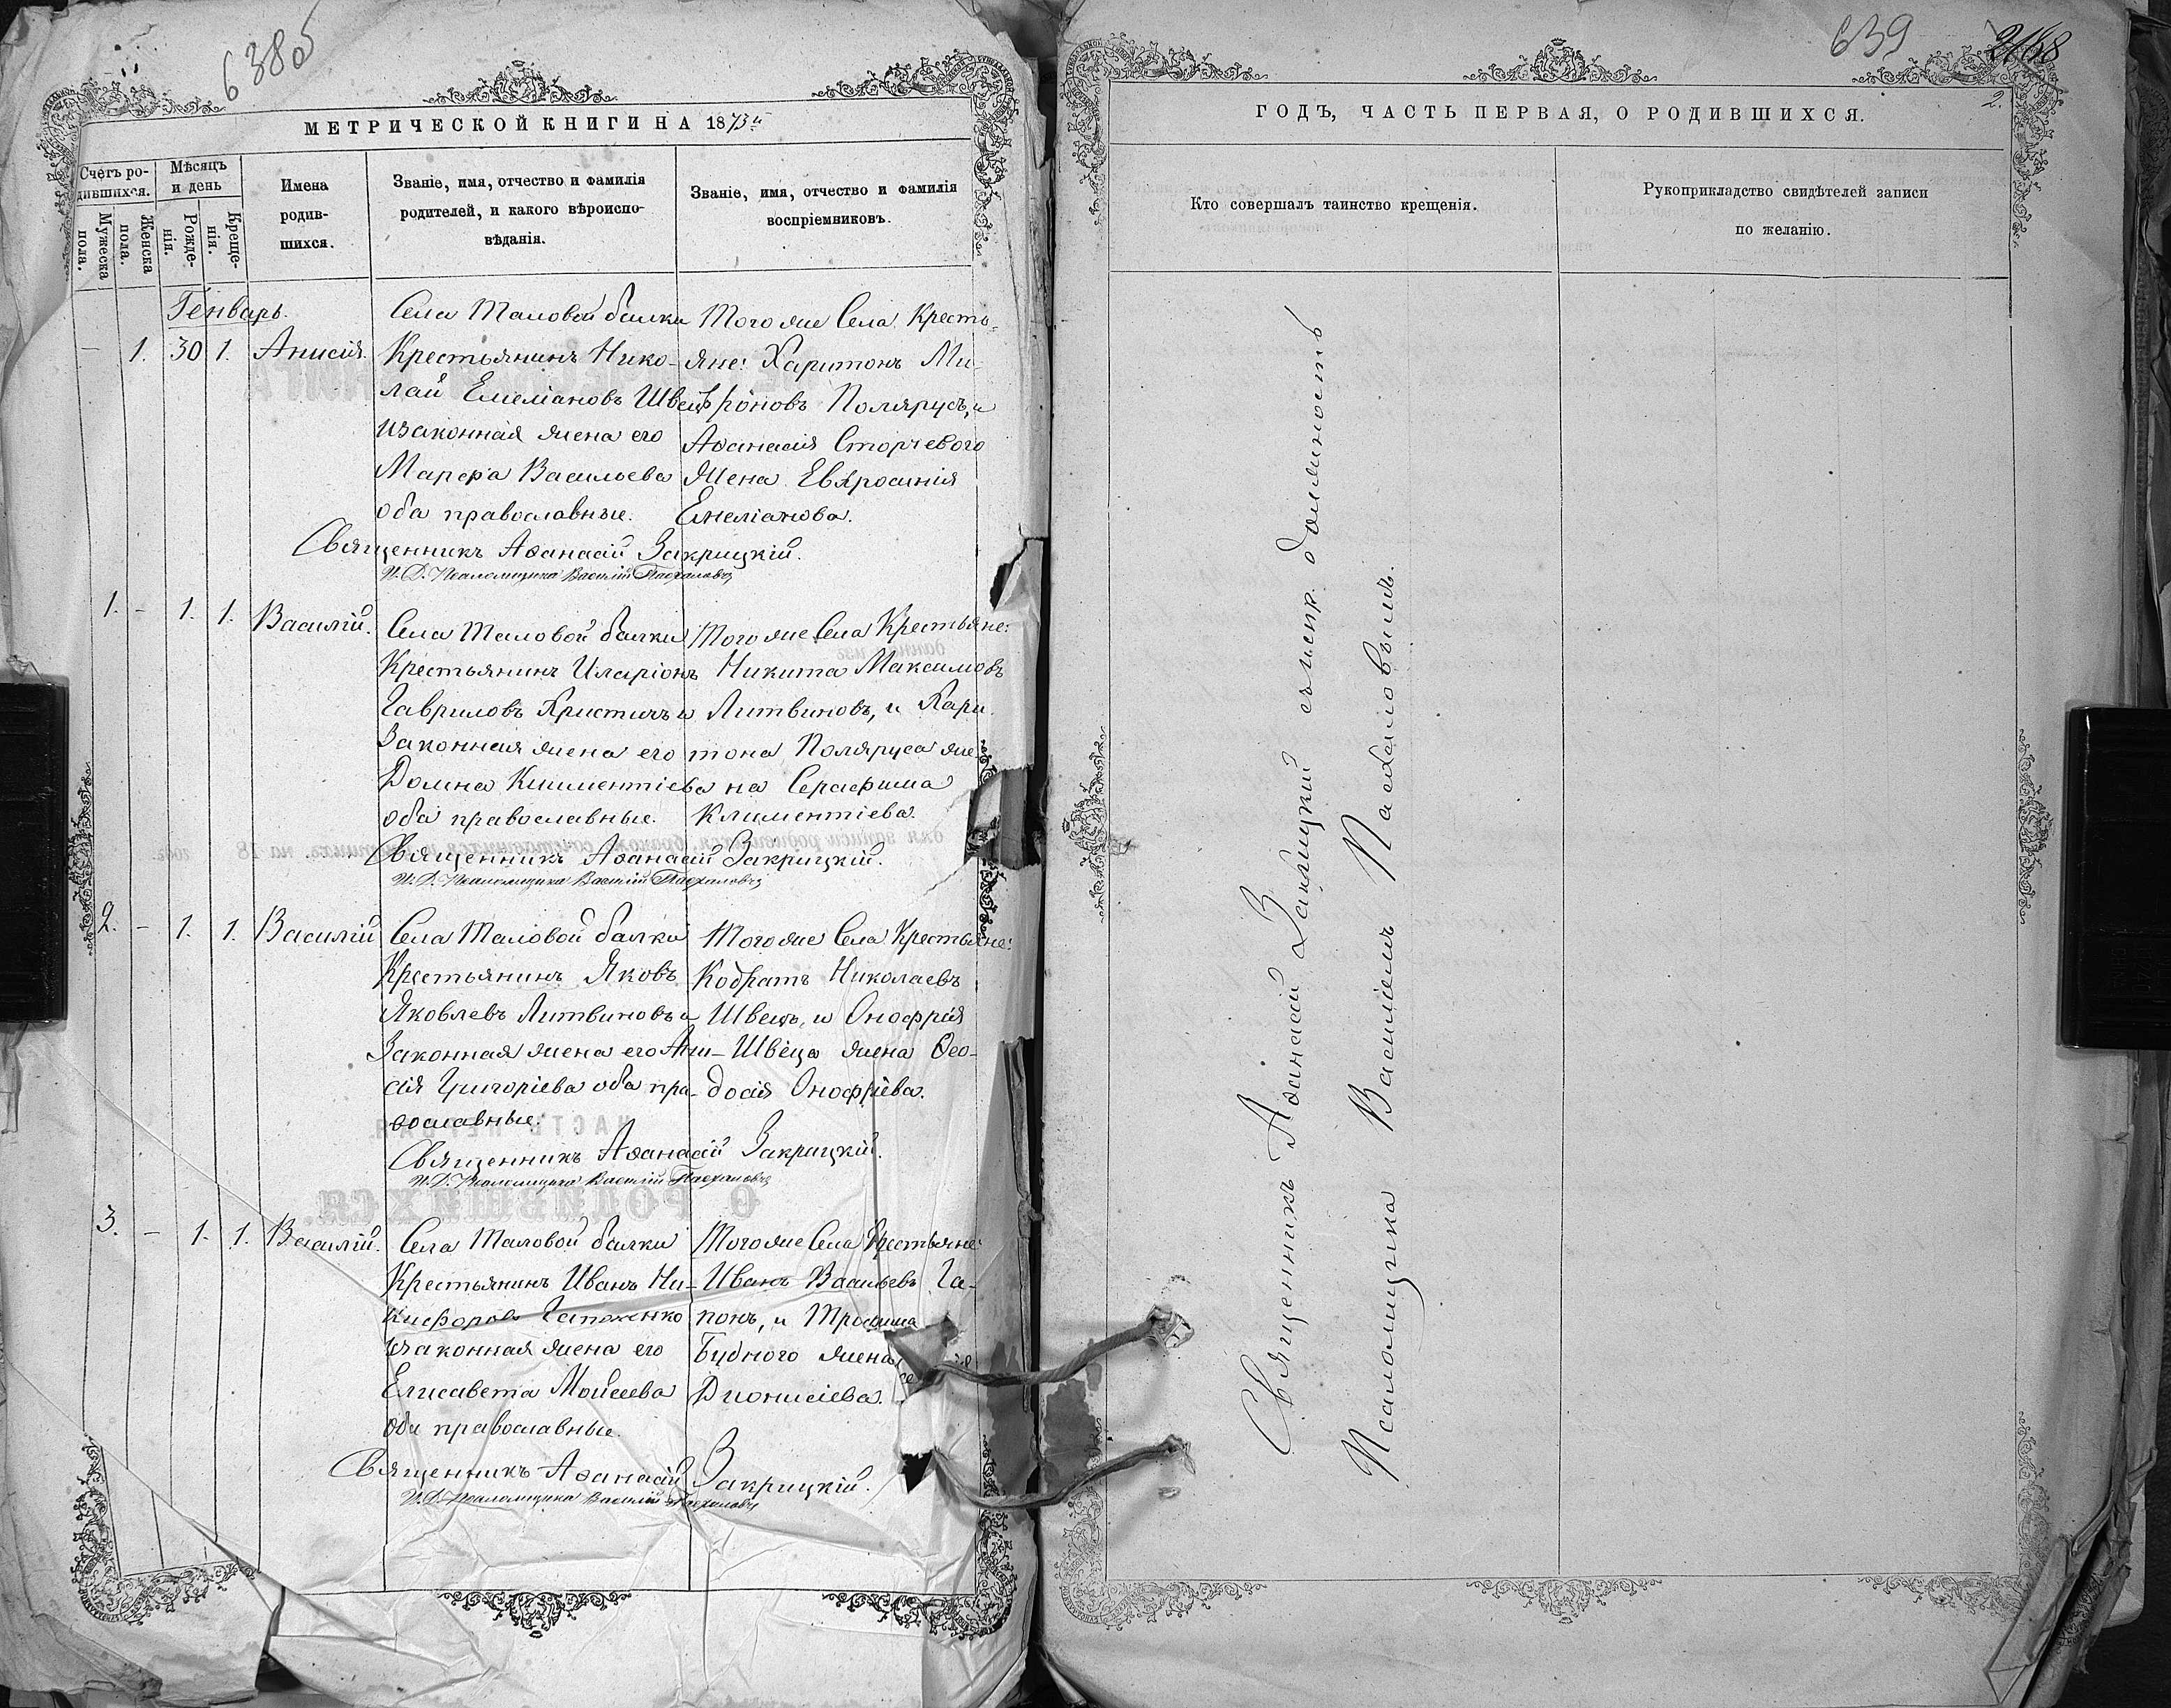 638об
МЕТРИЧЕСКОЙ КНИГИ НА 1873й
Счетъ ро-
дившихся.
Мужеска
пола.
Женска
пола.
Мѣсяцъ
и день
Рожде-
нія.
Креще-
нія.
Имена
родив-
шихся.
Званіе, имя, отчество и фамилія
родителей, и какого вѣроиспо-
вѣданія.
Званіе, имя, отчество и фамилія
воспріемниковъ.
Генварь.
— 1. 30 1. Анисія.
Села Таловой балки
Крестьянинъ Нико-
лай Емеліановъ Швецъ
изаконная жена его
Марфа Васильева
оба православные.
Того же Села Кресть-
яне: Харитонъ Ми-
троновъ Поляруст, и
Аѳанасія Сторчевого
Жена Евфросинія
Емеліанова.
Священникъ Аѳанасій Закрицкій.
И. Д. Псаломщика Василій Пасхаловъ
1. - 1. 1. Василій.
Села Таловой балки
Крестьянинъ Иларіонъ
Гавриловъ Христичъ и
Законная жена его
Домна Климентіева
оба православные.
Того же Села Крестьяне:
Никита Максимовъ
Литвиновъ, и Хари
тона Поляруса же
на Серафима
Климентіева.
Священникъ Аѳанасій Закрицкій.
И. Д. Псаломщика Василій Пасхаловъ
2. - 1. 1. Василій
Села Таловой балки
Крестьянинъ Яковъ
Яковлевъ Литвиновъ и
Законная жена его Ани-
сія Григоріева оба пра-
вославные.
Того же Села Крестьяне:
Кодратъ Николаевъ
Швецъ, и Онофрія
Швеца жена Ѳео-
досія Онофріева.
Священникъ Аѳанасій Закрицкій.
И. Д. Псаломщика Василій Пасхаловъ
3. - 1. 1. Василій.
Села Таловой балки
Крестьянинъ Иванъ Ни-
кифоровъ Гапоненко
изаконная жена его
Елисавета Моисеева
оба православные.
Того же Села Крестьяне:
Иванъ Васильевъ Га-
понъ, и Трофима
Будного жена
Діонисіева.
Священникъ Аѳанасій Закрицкій.
И. Д. Псаломщика Василій Пасхаловъ
639
2.
ГОДЪ, ЧАСТЬ ПЕРВАЯ, О РОДИВШИХСЯ.
Кто совершалъ таинство крещенія.
Рукоприкладство свидѣтелей записи
по желанію.
Священникъ Аѳанасій Закрицкій съ испр. должность
Псаломщика Василіемъ Пасхаловымъ.